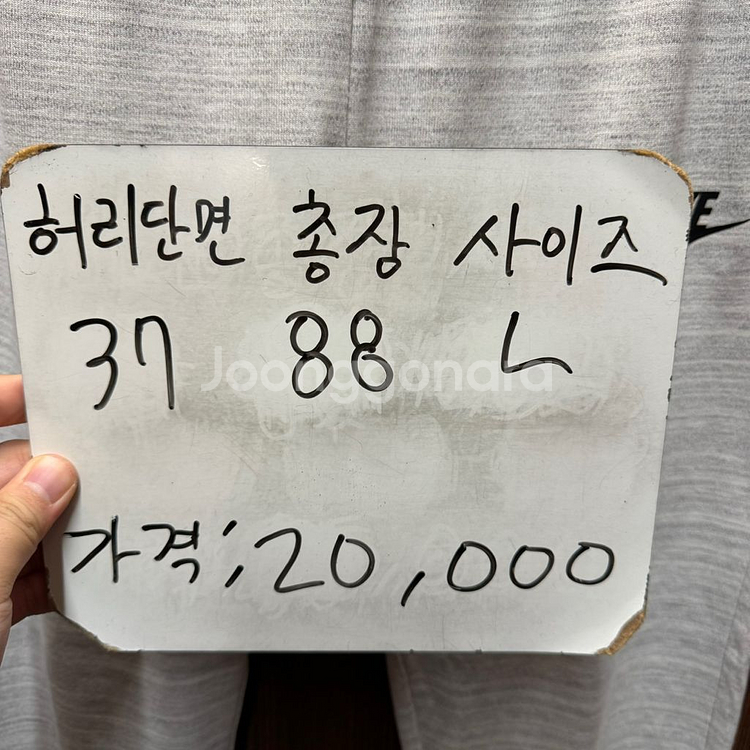 허리단면 총장 사이즈
37 88 L
가격; 20,000
Joonggonara